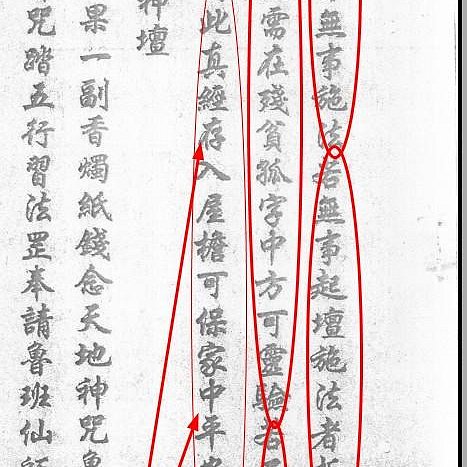 無事施法若無事起壇施法者
需在殘貧孤字中方可靈驗若
此真經存入屋檐可保家中平
神壇
果一副香燭紙錢念天地神咒魯
咒踏五行習法罡奉請魯班仙師